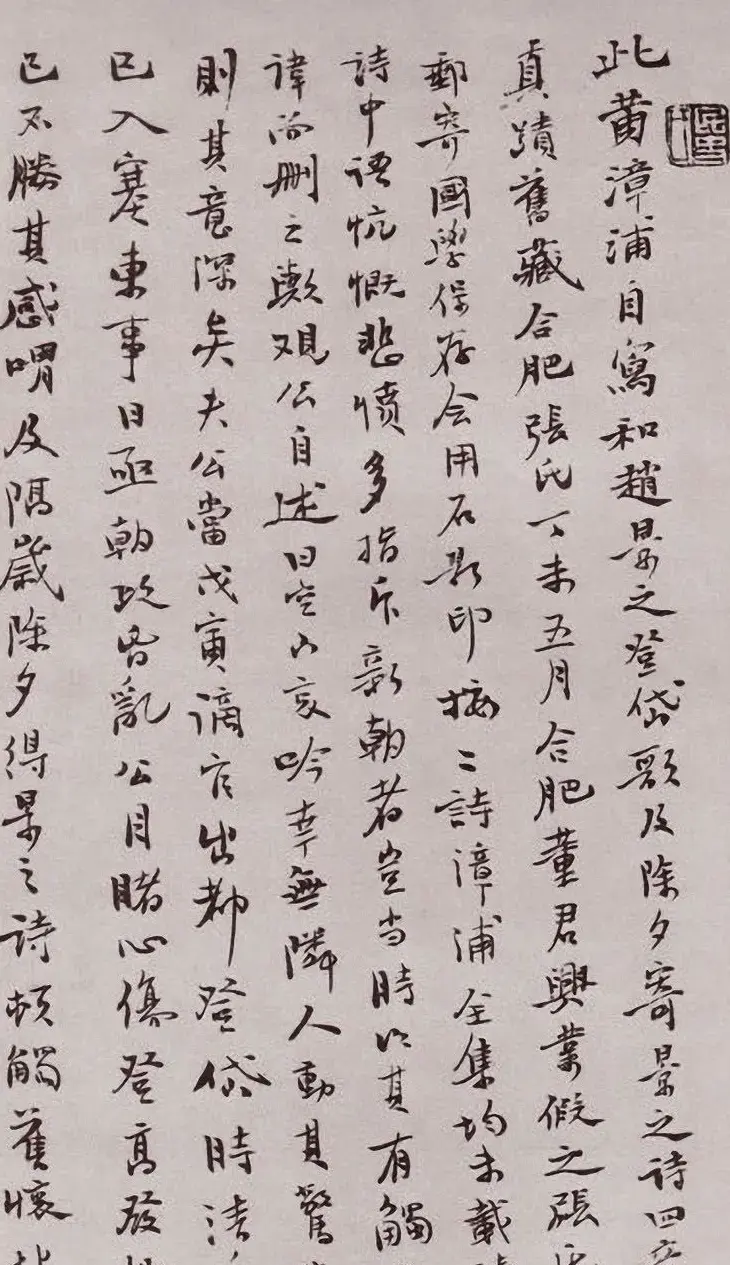 此黃漳浦自寫和趙景之登岱歌及除夕寄景之詩四章
真蹟舊藏合肥張氏丁未五月合肥董君興業假之張氏
郵寄國學保存會用石影印按二詩漳浦全集均未載
詩中語忼慨悲憤多指斥新朝者豈當時以其有觸
諱而刪之歟觀公自述曰空山哀吟幸無隣人動其驚
則其意深矣夫公當戊寅謫官出都登岱時清
已入塞東事日亟朝政昏亂公目睹心傷登高發
已不勝其感喟及隔歲除夕得景之詩頓觸舊懷